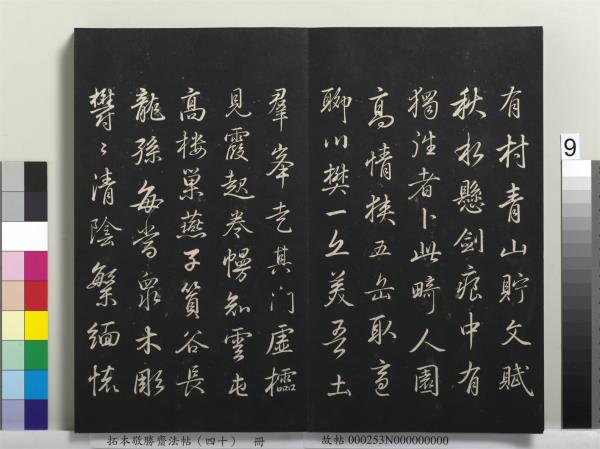 有村青山貯文賦
秋水懸劍痕中有
獨往者卜此畸人園
高情挾五岳取意
聊以樊一丘美吾土
羣峯走其门虛櫺
見霞起卷幔知雲屯
高樓巢燕子篔谷長
龍孫每當衆木彫
欝〻清陰繁緬懷
9
拓本敬勝齋法帖(四十) 冊 故帖 000253N000000000